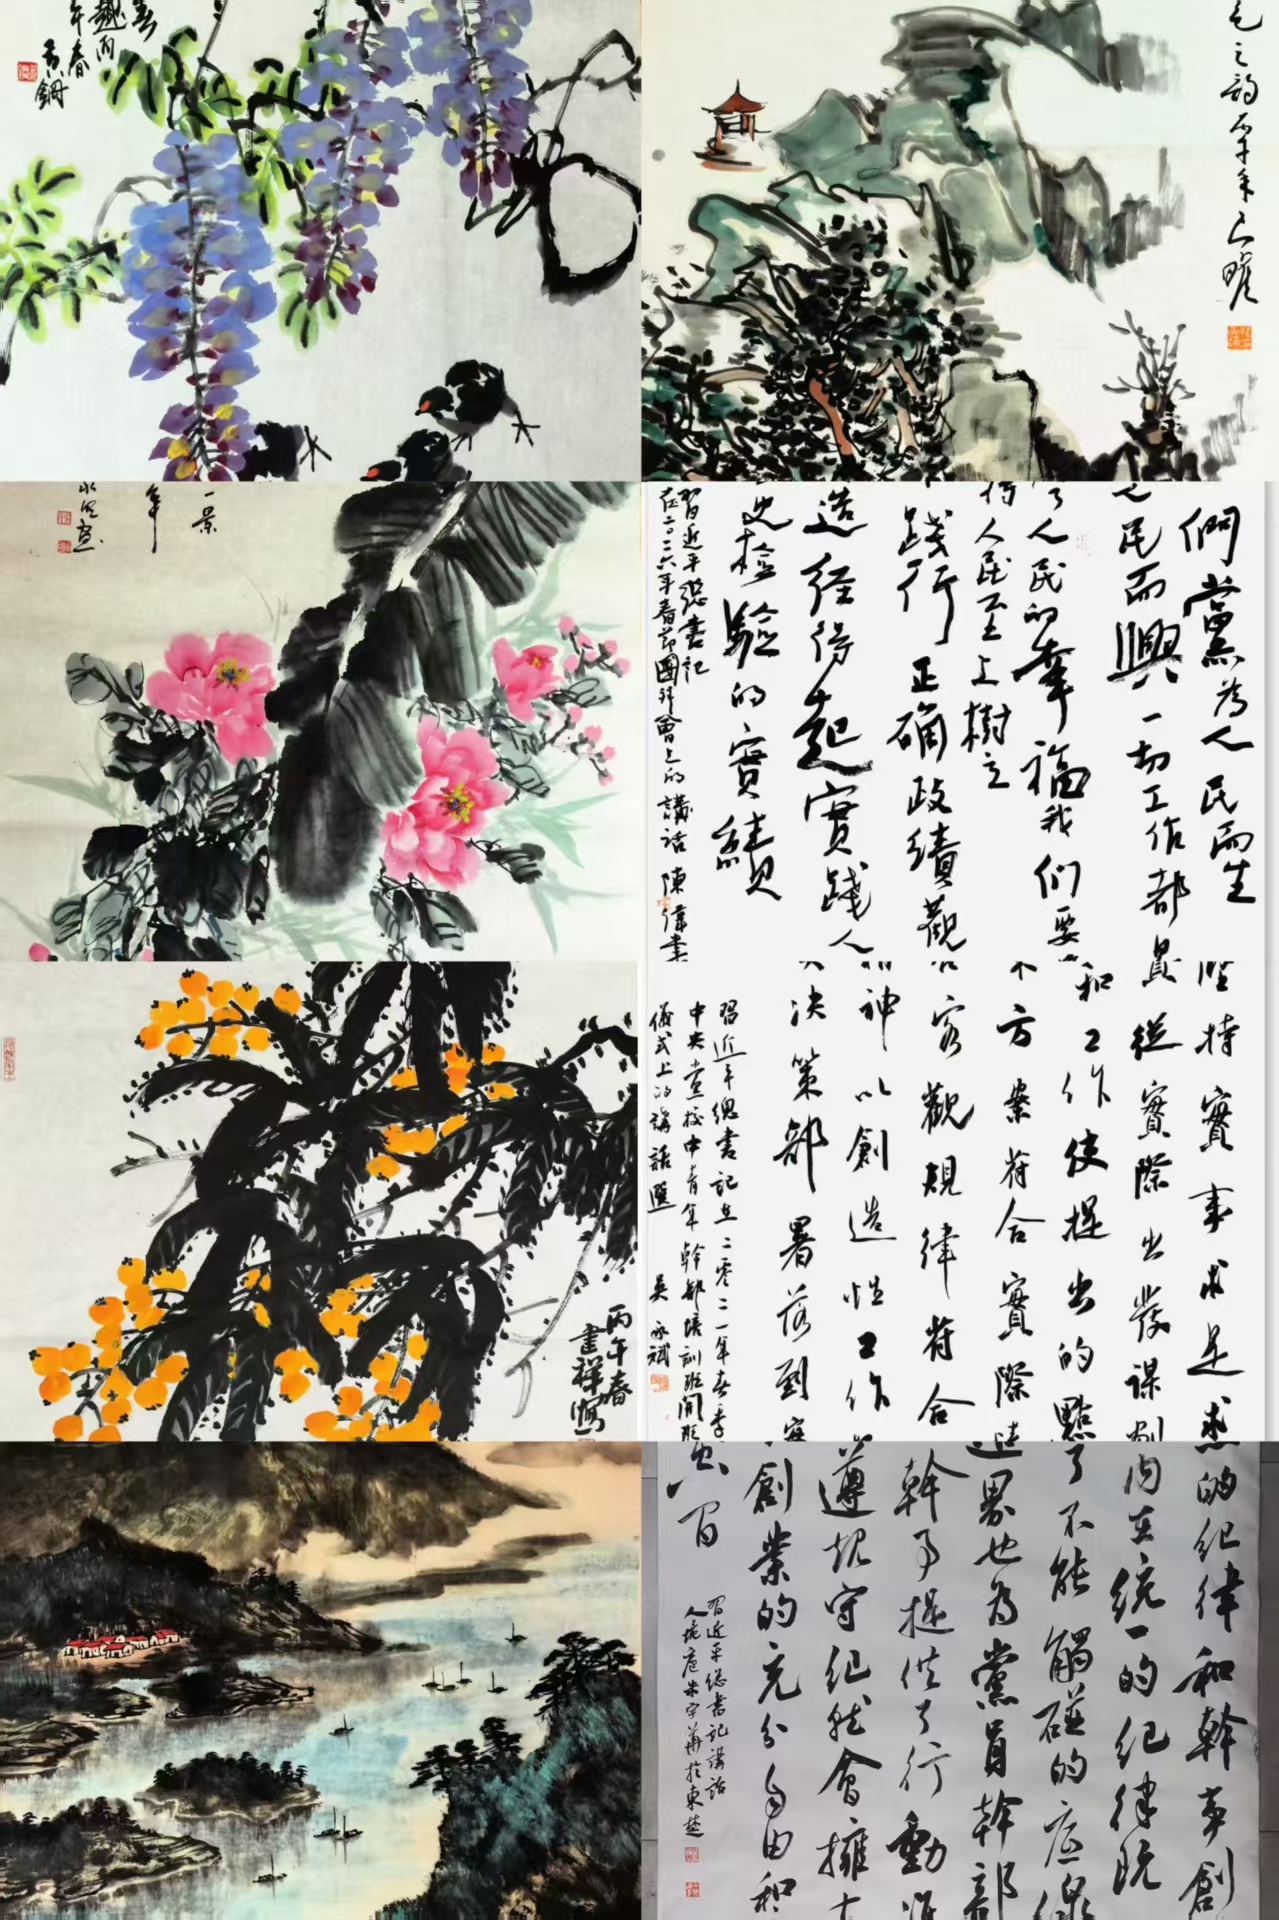 年春
之韵
一景
年
們黨為人民而生
民而興一切工作都是
人民的幸福我们要
人民至上樹立
踐行正确政績觀
造经得起實踐人
史检驗的實績
習近平總書記
在二〇二六年春节團拜會上的講話 陳偉書
丙午春
書祥寫
堅持實事求是
從實際出發謀划
和工作使提出的點
方案符合實際
客觀規律符合
神以創造性工作
决策部署落到實
習近平總書記在二零二一年春季
中央党校中青年幹部培訓班開班
儀式上的講話選 吳永斌
的纪律和幹事創
内在統一的纪律既
了不能觸碰的底線
邊界也為黨員幹部
幹事提供了行動
遵规守纪就會擁有
創業的充分自由和
空间
習近平總書記講話